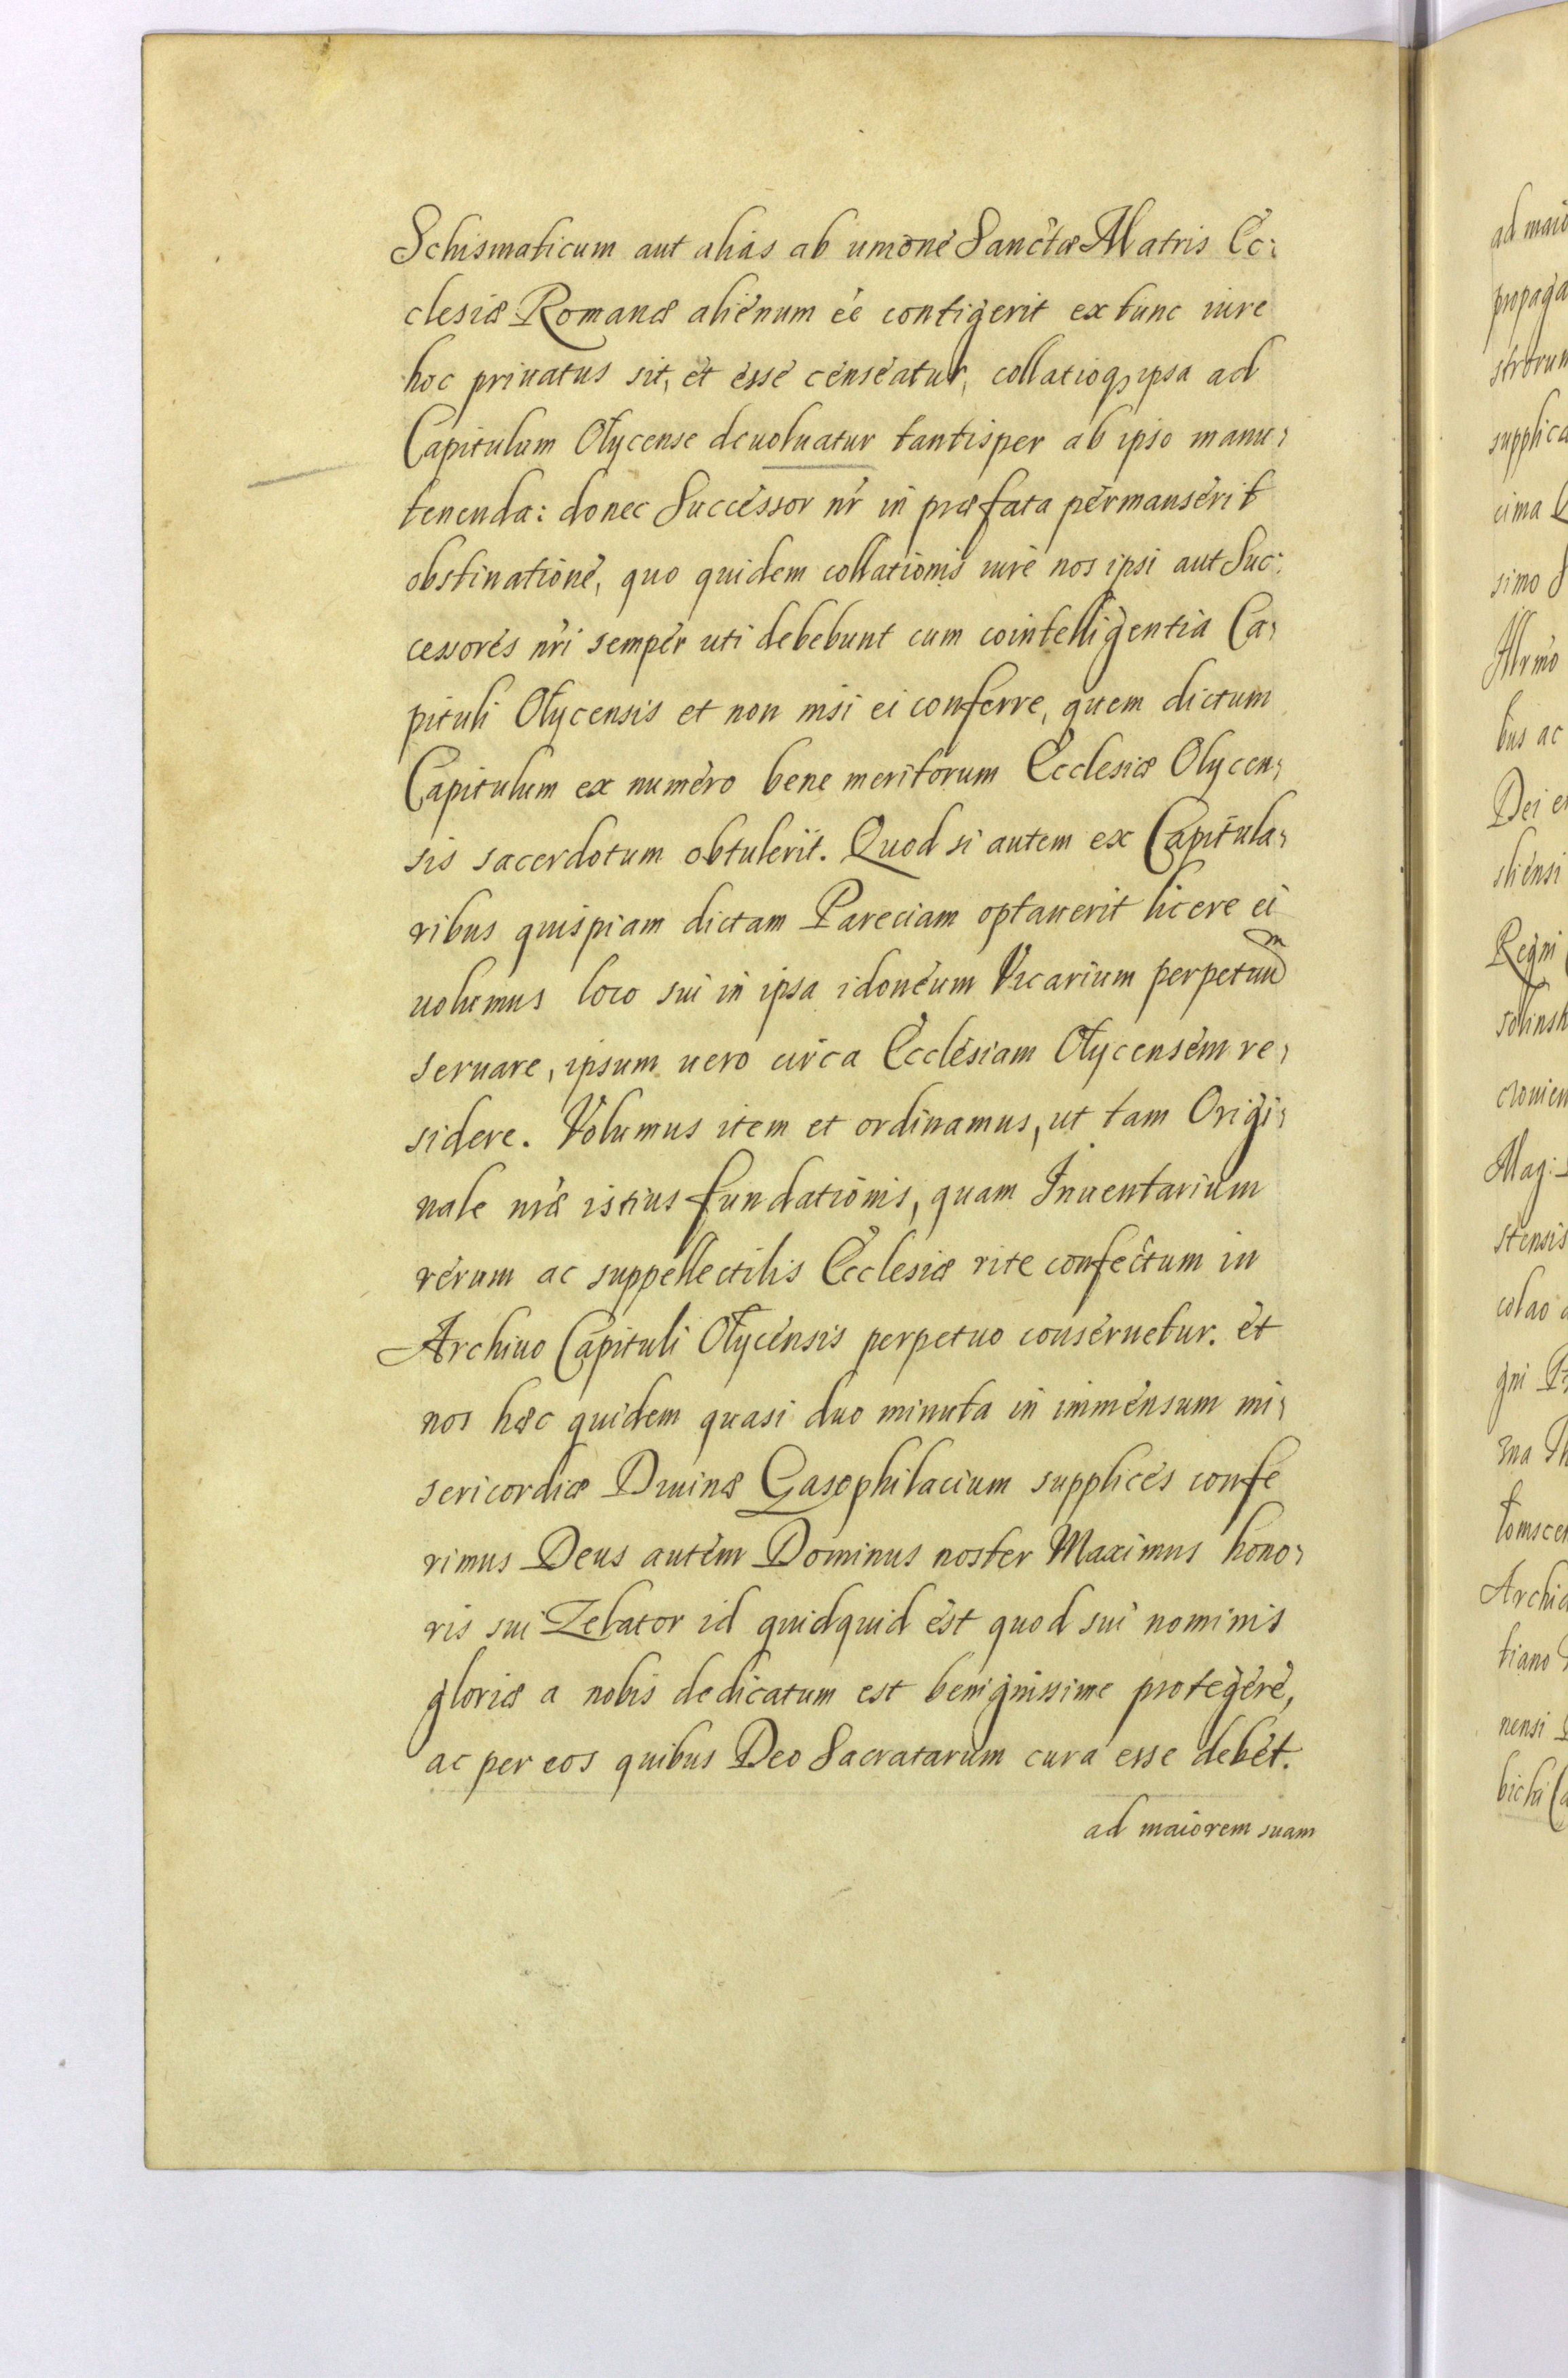 Schismaticum aut alias ab unione Sanctæ Matris Ec:
clesiæ Romanæ alienum eē contigerit ex tunc iure
hoc priuatus sit, et esse censeatur, collatioq; ipsa ad
Capitulum Olycense deuoluatur tantisper ab ipso manu,
tenenda: donec Successor nr̄ in præfata permanserit
obstinatione, quo quidem collationis iure nos ipsi aut Suc:
cessores nr̄i semper uti debebunt cum cointelligentia Ca,
pituli Olycensis et non nisi ei conferre, quem dictum
Capitulum ex numero bene meritorum Ecclesiæ Olycen,
sis sacerdotum obtulerit. Quod si autem ex Capitula,
ribus quispiam dictam Pareciam optauerit licere ei
uolumus loco sui in ipsa idoneum Vicarium perpetuum
seruare, ipsum uero circa Ecclesiam Olycensem re,
sidere. Volumus item et ordinamus, ut tam Origi,
nale nr̄æ istius fundationis, quam Inuentarium
rerum ac suppellectilis Ecclesiæ rite confectum in
Archiuo Capituli Olycensis perpetuo conseruetur. et
nos hæc quidem quasi duo minuta in immensum mi,
sericordiæ Diuinæ Gasophilacium supplices confe
rimus Deus autem Dominus noster Maximus hono,
ris sui Zelator id quidquid est quod sui nominis
gloriæ a nobis dedicatum est benignissime protegere,
ac per eos quibus Deo Sacratarum cura esse debet.
ad maiorem suam
ad maio
propaga
strorum
supplica
cima
simo
Illrmo
bus ac
Dei
sliensi
Regni
solinsk
crouien
Mag:
stensis
colao
gni
ma
tomscen
Archid
tiano
nensi
bichi